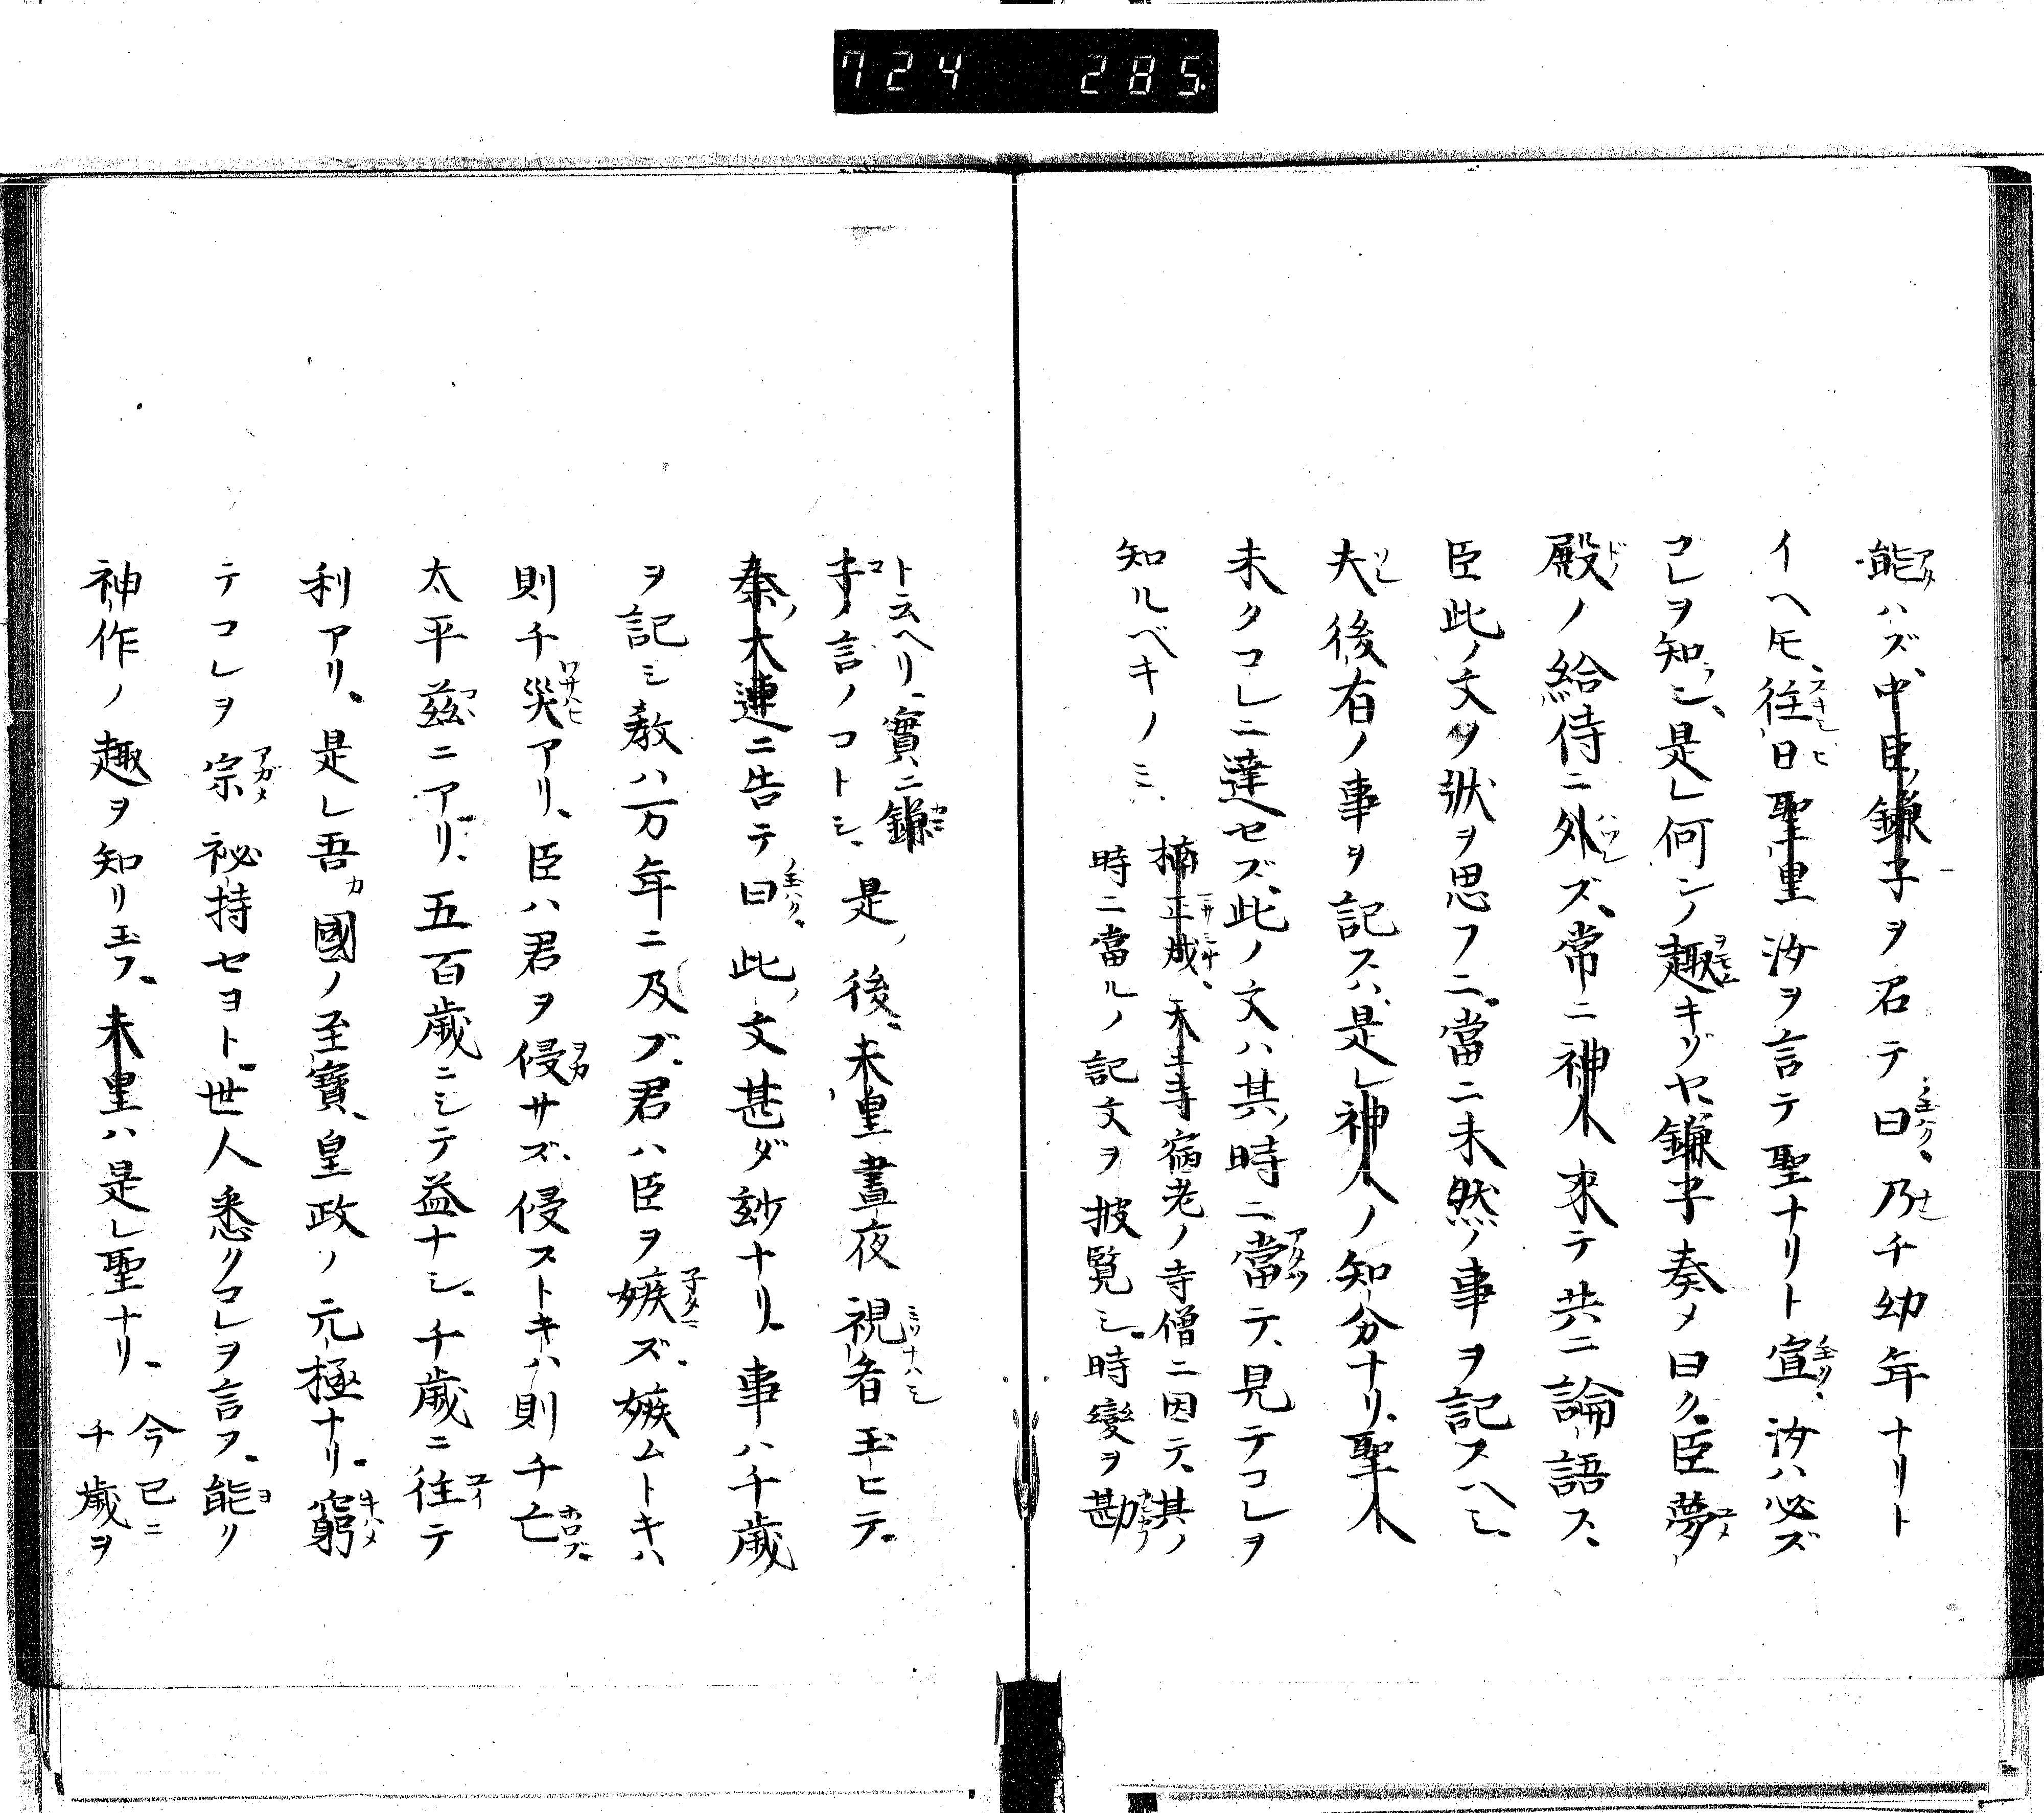 724 285
能ハズ、中臣ノ鎌子ヲ召テ曰ク、乃チ幼年ナリト
イヘ𪜈、往日聖皇汝ヲ言テ聖ナリト宣リ、汝ハ必ズ
コレヲ知ラシ、是レ何ンノ趣キゾヤ、鎌子奏メ曰ク、臣夢
殿ノ給侍ニ外レズ、常ニ神人来テ共ニ論語ス、
臣此ノ文ノ狀ヲ思フニ、當ニ未然ノ事ヲ記スヘシ、
夫レ後有ノ事ヲ記スハ、是レ神人ノ知分ナリ、聖人
未タコレニ達セズ、此ノ文ハ其ノ時ニ當テ、見テコレヲ
知ルベキノミ、
楠正成、天王寺宿老ノ寺僧ニ因テ、其ノ
時ニ當ルノ記文ヲ披覧シ、時變ヲ勘
ト云ヘリ、實ニ鎌
子ノ言ノコトシ、是ノ後、未皇晝夜視者玉ヒテ、
秦ノ大連ニ告テ曰ク、此ノ文甚ダ玅ナリ、事ハ千歳
ヲ記シ教ハ万年ニ及ブ、君ハ臣ヲ嫉ズ、嫉ムトキハ
則チ災アリ、臣ハ君ヲ侵サズ、侵ストキハ則チ亡
太平茲ニアリ、五百歳ニシテ益ナシ、千歳ニ往テ
利アリ、是レ吾カ國ノ至寶、皇政ノ元極ナリ、窮メ
テコレヲ宗メ祕持セヨト、世人悉クコレヲ言フ、能ク
神作ノ趣ヲ知リ玉フ、未皇ハ是レ聖ナリ、
今已ニ
千歳ヲ